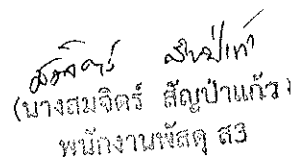 (นางสมจิตร์ สัญป่าแก้ว)
พนักงานพัสดุ ส3